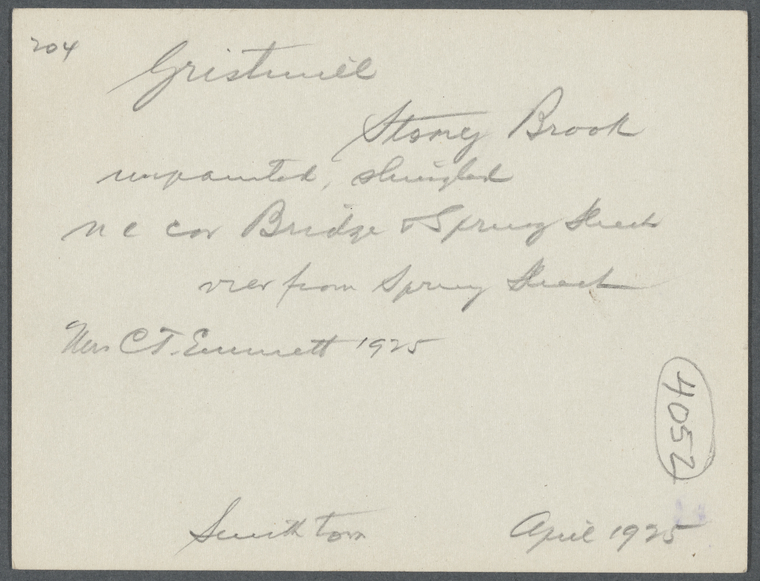 204
Gristmill
Stoney Brook
unpainted, shingled
n e cor Bridge & Spring Streets
view from Spring Street
Mrs C T. Emmett 1925
4052
Smithtown
April 1925